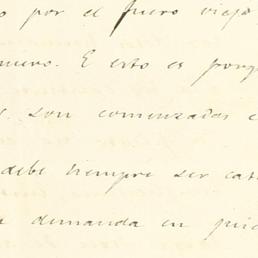 o por el fuero viejo
nuevo. E esto es porq
s. son comenzadas e
debe siempre ser cat
a demanda en juic